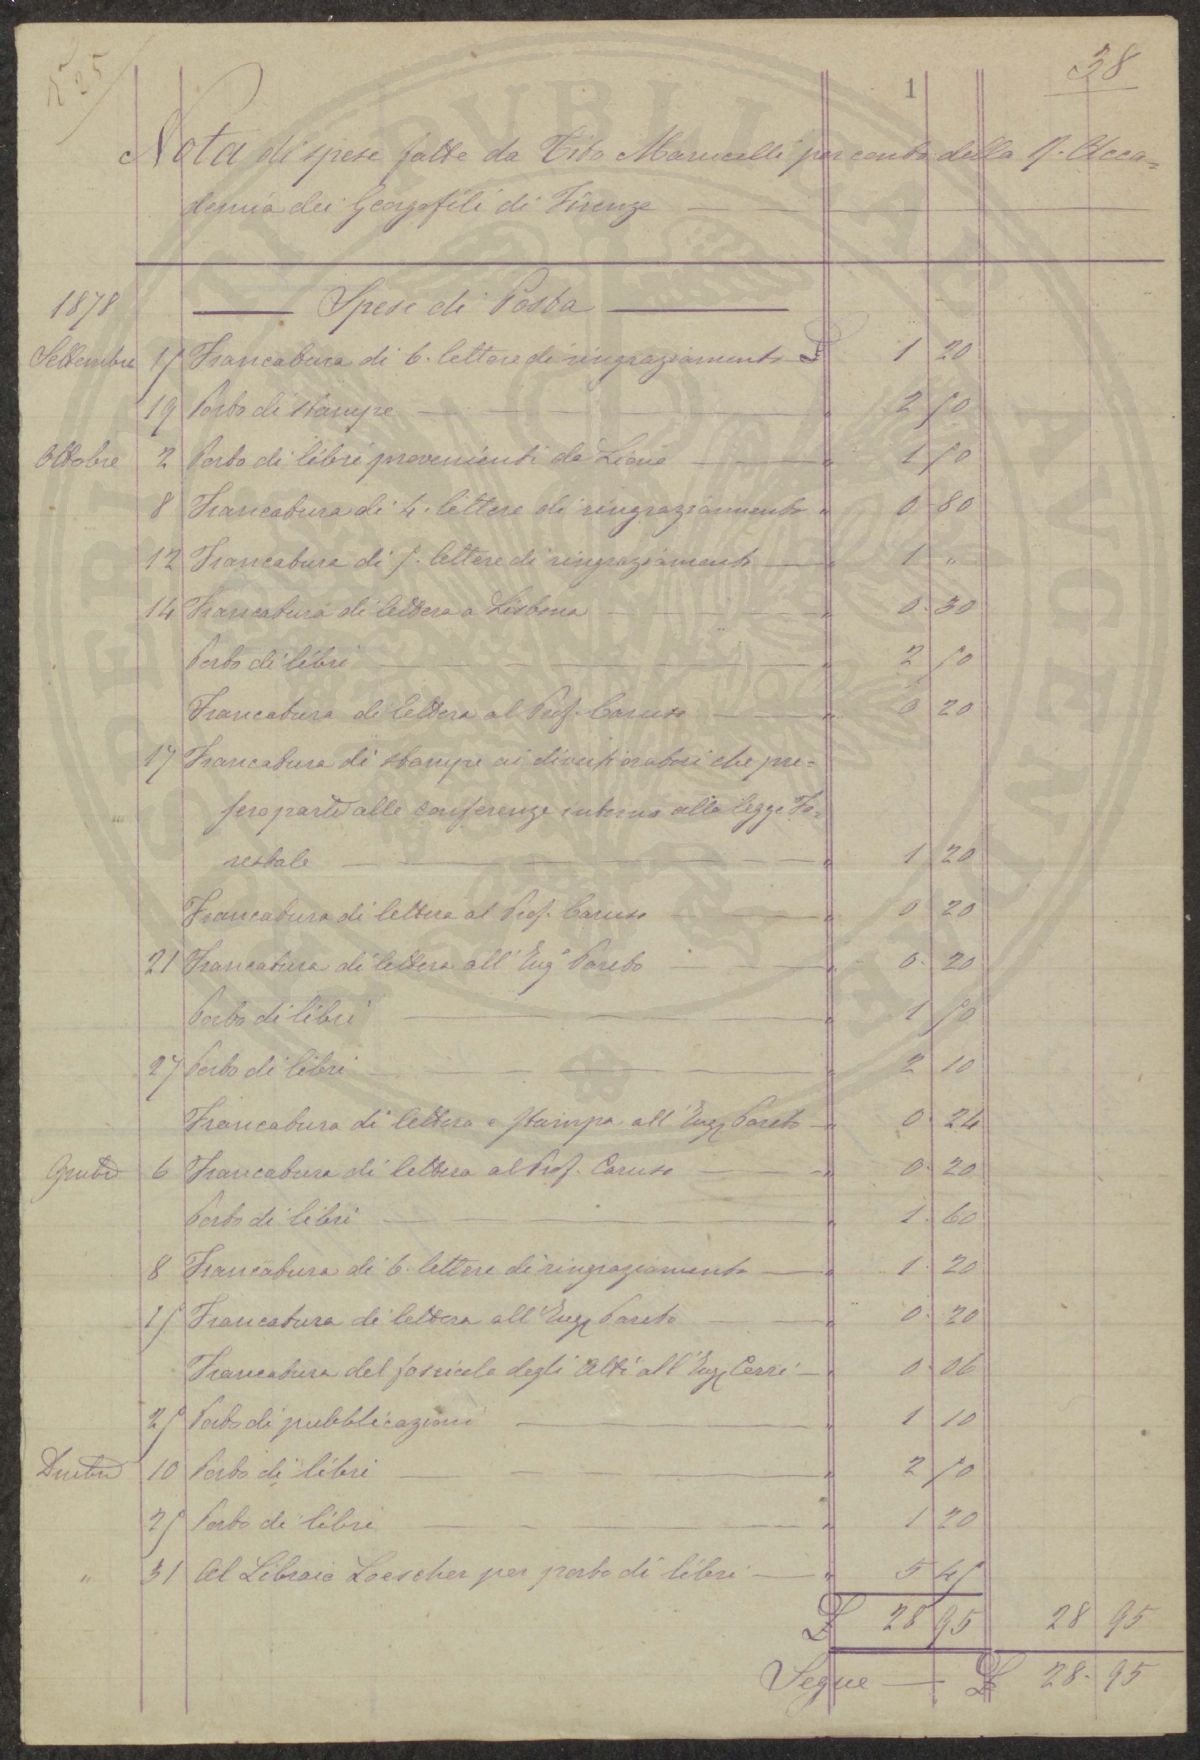 N° 25
1
38
Nota di spese fatte da Tito Marucelli per conto della R. Acca=
demia dei Georgofili di Firenze
1878 Spese di Posta
Settembre 15 Francatura di 6. lettere di ringraziamento £ 1 20
19 Porto di stampe " 2 50
Ottobre 2 Porto di libri provenienti da Lione " 1 50
8 Francatura di 4. lettere di ringraziamento " 0. 80
12 Francatura di 5. lettere di ringraziamento " 1 "
14 Francatura di lettera a Lisbona " 0. 30
Porto di libri " 2 50
Francatura di lettera al Prof. Caruso " 0 20
17 Francatura di stampe ai diversi oratori che pre=
sero parte alle conferenze intorno alla legge Fo=
restale " 1 20
Francatura di lettera al Prof. Caruso " 0 20
21 Francatura di lettera all'Ing.e Pareto " 0. 20
Porto di libri " 1 50
27 Porto di libri " 2 10
Francatura di lettera e stampa all'Ing.e Pareto " 0. 24
9mbre 6 Francatura di lettera al Prof. Caruso " 0. 20
Porto di libri " 1. 60
8 Francatura di 6. lettere di ringraziamento " 1. 20
15 Francatura di lettera all'Ing.e Pareto " 0. 20
Francatura del fascicolo degli Atti all'Ing.e Cerri " 0 06
25 Porto di pubblicazioni " 1 10
Dmbre 10 Porto di libri " 2 50
25 Porto di libri " 1 20
" 31 Al Libraio Loescher per porto di libri " 5 45
£ 28 95 28 95
Segue £ 28. 95